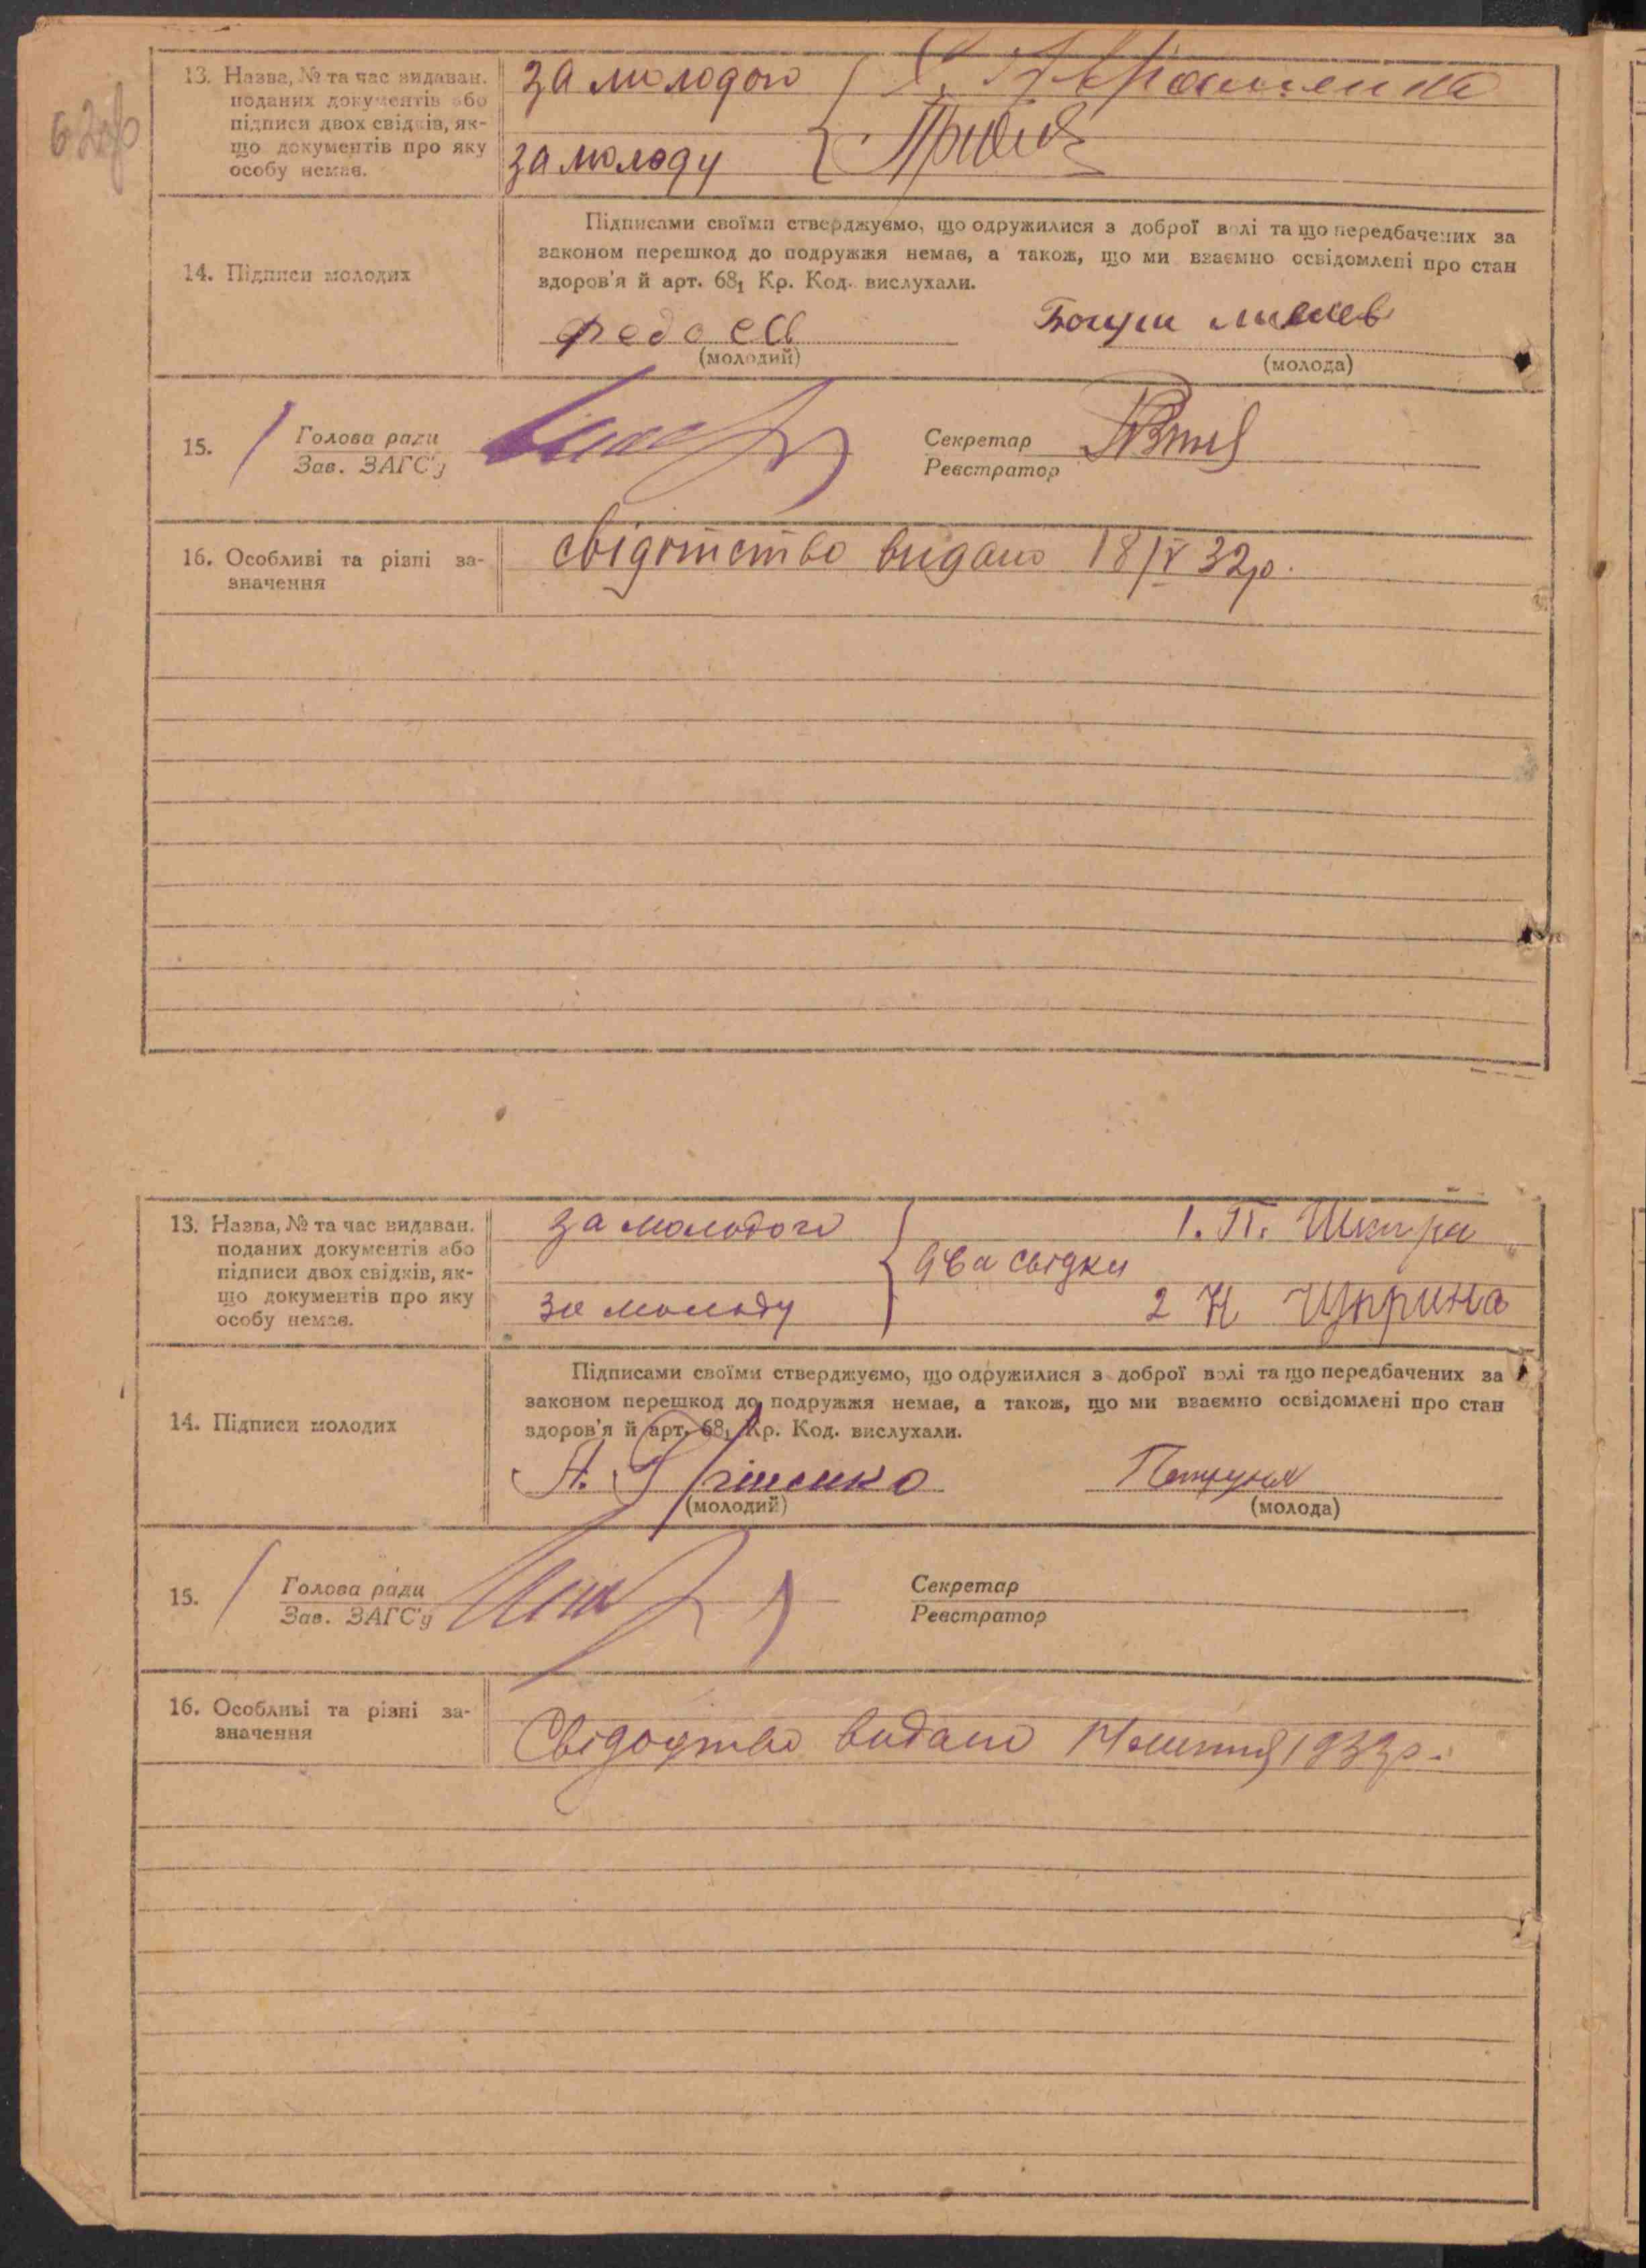 13. Назва, № та час видаван.
поданих документів або
підписи двох свідків, як-
що документів про яку
особу немає.
за молодого
за молоду
14. Підписи молодих
Підписами своїми стверджуємо, що одружилися з доброї волі та що передбачених за
законом перешкод до подружжя немає, а також, що ми взаємно освідомлені про стан
здоров'я й арт. 68₁ Кр. Код. вислухали.
(молодий)
(молода)
15. Голова ради
Зав. ЗАГС'у
Секретар
Реєстратор
16. Особливі та різні за-
значення
видано 18/V 32р.
13. Назва, № та час видаван.
поданих документів або
підписи двох свідків, як-
що документів про яку
особу немає.
за молодого
два свідки
за молоду
1. П. Шкура
2 Н Цюприна
14. Підписи молодих
Підписами своїми стверджуємо, що одружилися з доброї волі та що передбачених за
законом перешкод до подружжя немає, а також, що ми взаємно освідомлені про стан
здоров'я й арт. 68₁ Кр. Код. вислухали.
(молодий)
(молода)
15. Голова ради
Зав. ЗАГС'у
Секретар
Реєстратор
16. Особливі та різні за-
значення
видано